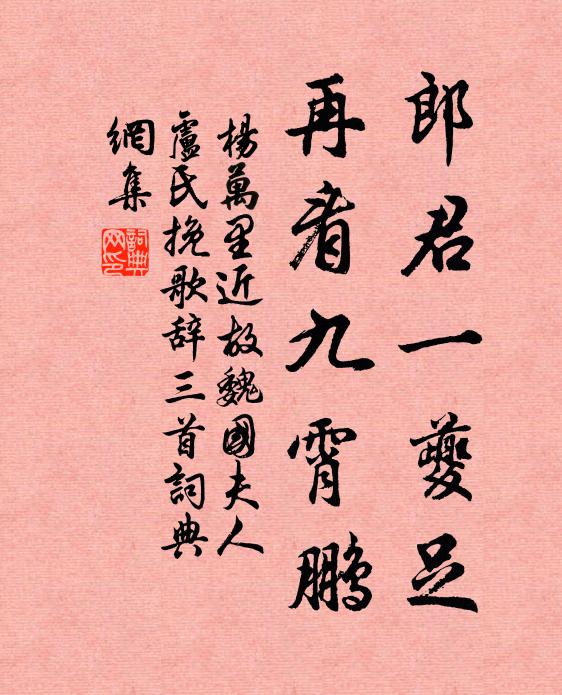 郎君一夔足
再看九霄鵬
楊萬里近故魏國夫人
盧氏挽歌辞三首詞典
網集
詞典网印